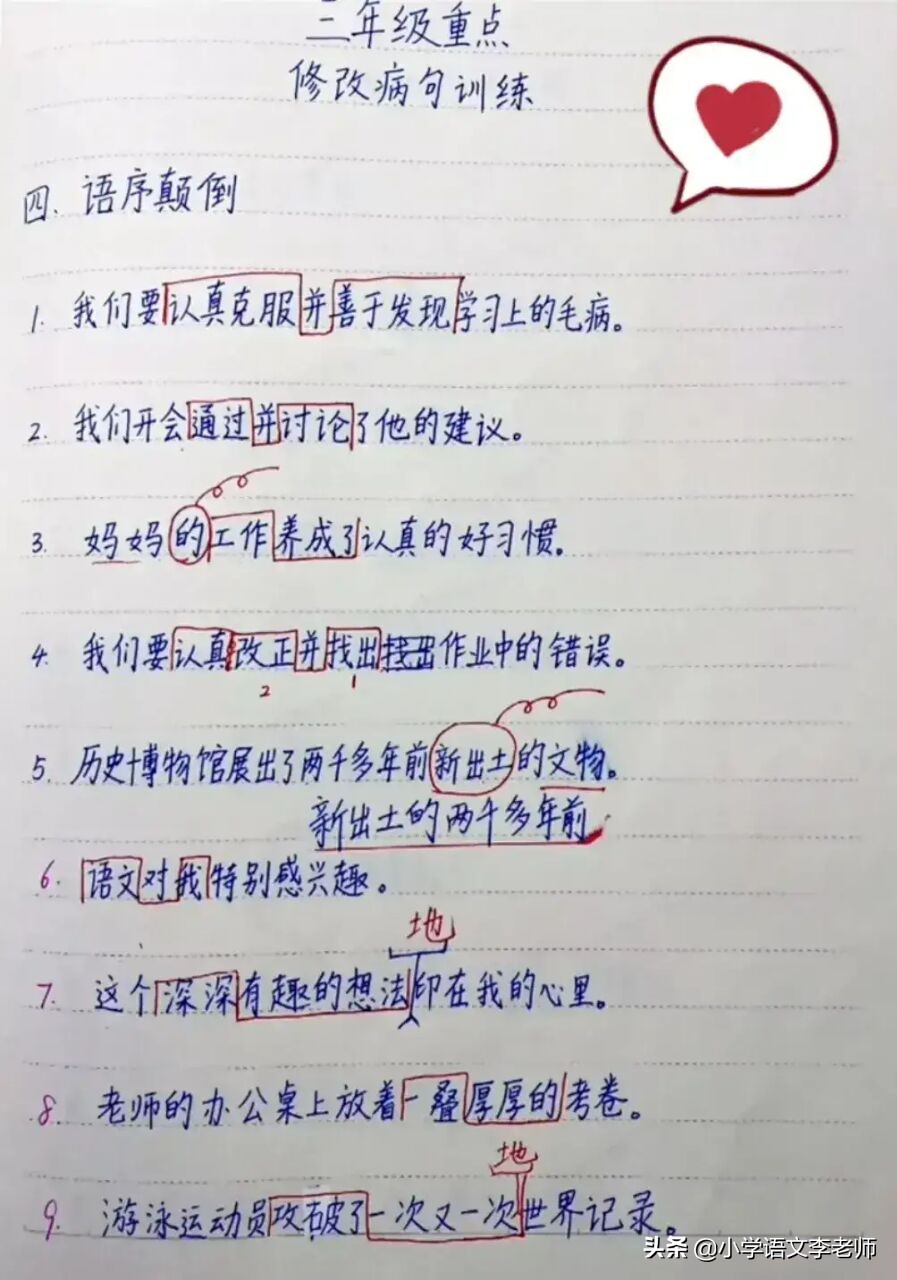 三年级重点
修改病句训练
四. 语序颠倒
1. 我们要认真克服并善于发现学习上的毛病。
2. 我们开会通过并讨论了他的建议。
3. 妈妈的工作养成了认真的好习惯。
4. 我们要认真改正并找出找出作业中的错误。
2 1
5. 历史博物馆展出了两千多年前新出土的文物。
新出土的两千多年前
6. 语文对我特别感兴趣。
地
7. 这个深深有趣的想法印在我的心里。
8. 老师的办公桌上放着一叠厚厚的考卷。
地
9. 游泳运动员攻破了一次又一次世界记录。
头条 @小学语文李老师